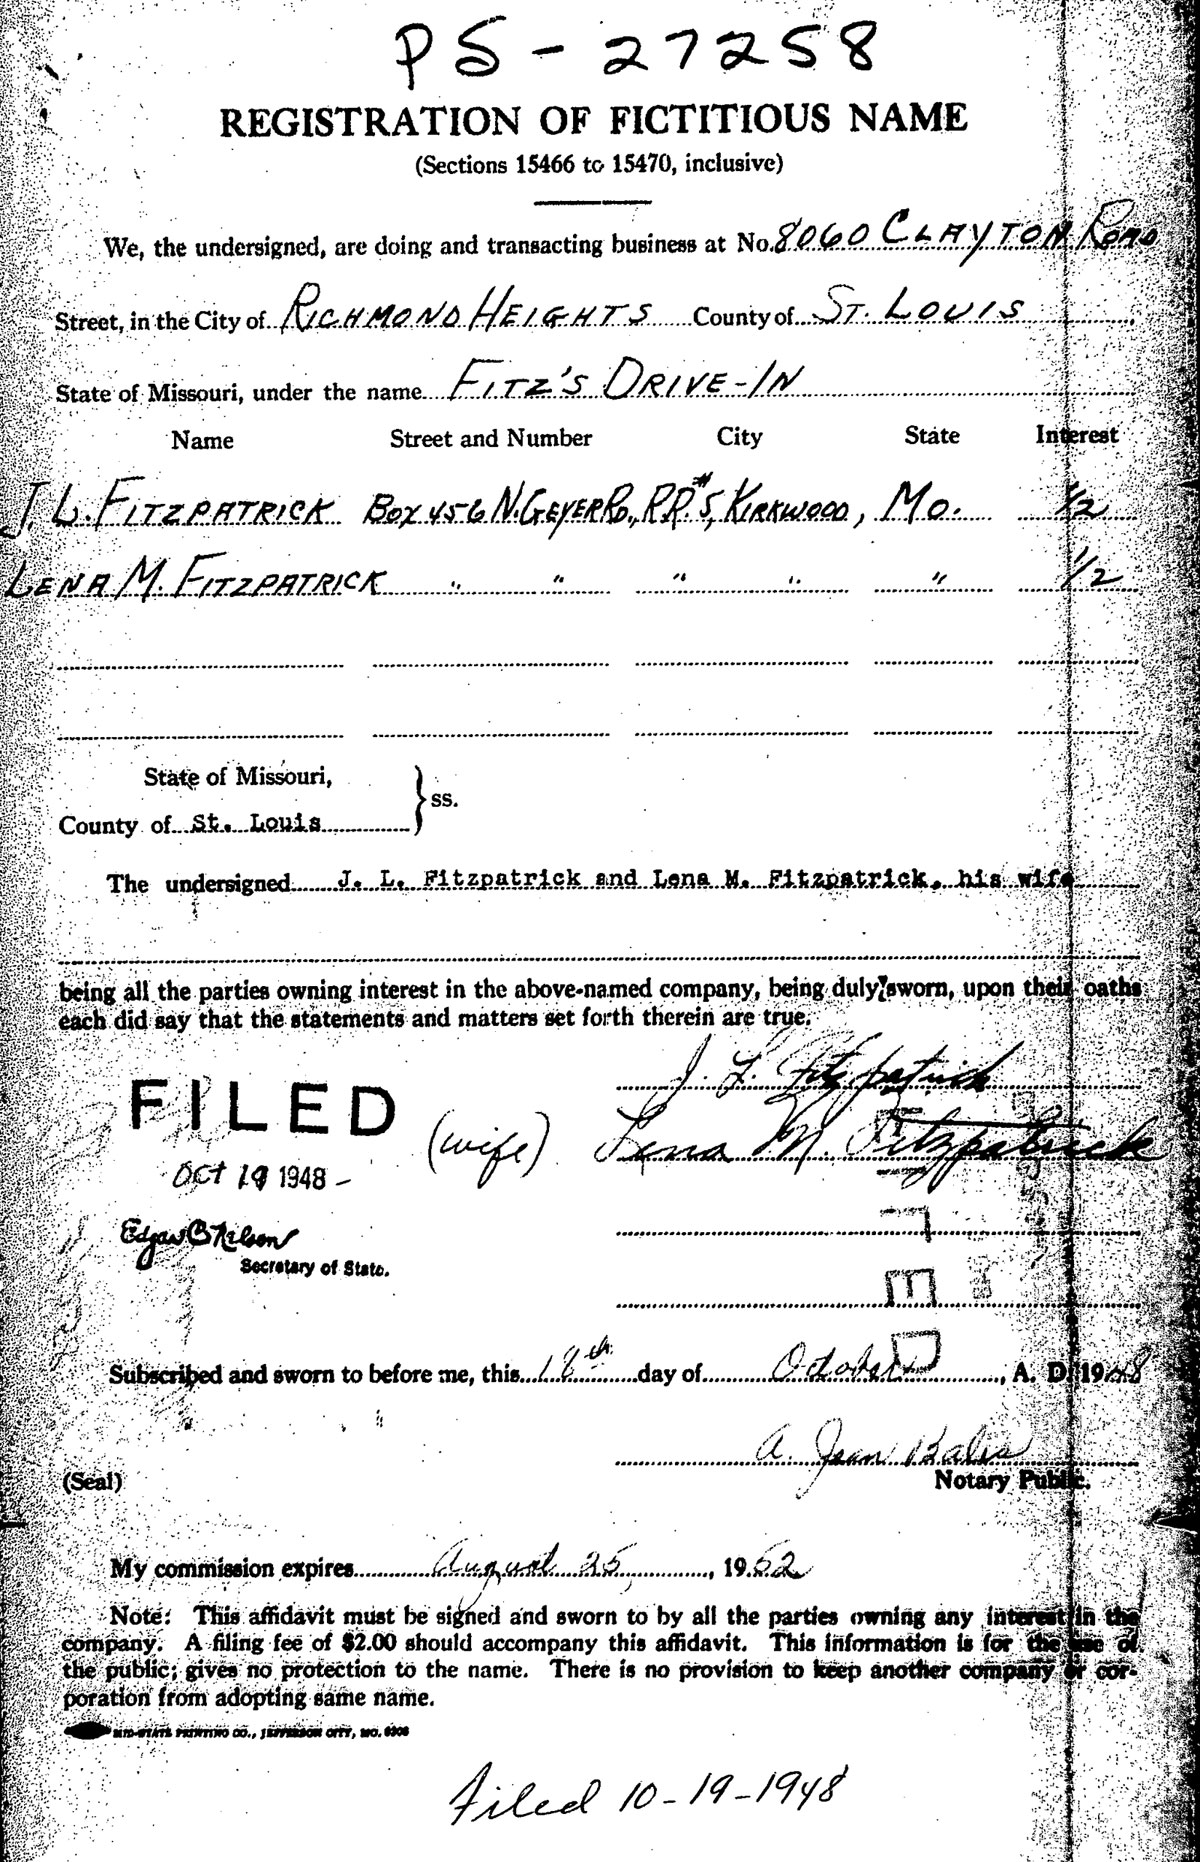 PS-27258
REGISTRATION OF FICTITIOUS NAME
(Sections 15466 to 15470, inclusive)
We, the undersigned, are doing and transacting business at No. 8060 CLAYTON ROAD
Street, in the City of RICHMOND HEIGHTS County of ST. LOUIS
State of Missouri, under the name FITZ'S DRIVE-IN
Name Street and Number City State Interest
J. L. FITZPATRICK BOX 456 N. GEYER RD., R.R. #5, KIRKWOOD, MO. 1/2
LENA M. FITZPATRICK " " " " " 1/2
State of Missouri,
County of St. Louis } ss.
The undersigned J. L. Fitzpatrick and Lena M. Fitzpatrick, his wife
being all the parties owning interest in the above-named company, being duly sworn, upon their oaths
each did say that the statements and matters set forth therein are true.
J. L. Fitzpatrick
FILED
(wife) Lena M. Fitzpatrick
OCT 19 1948
Edgar C Nelson
Secretary of State.
FILED
Subscribed and sworn to before me, this 18th day of October, A. D. 1948
A. Jean Bales
(Seal) Notary Public.
My commission expires August 25, 1952
Note: This affidavit must be signed and sworn to by all the parties owning any interest in the
company. A filing fee of $2.00 should accompany this affidavit. This information is for the use of
the public; gives no protection to the name. There is no provision to keep another company or cor-
poration from adopting same name.
MID-STATE PRINTING CO., JEFFERSON CITY, MO.
Filed 10-19-1948